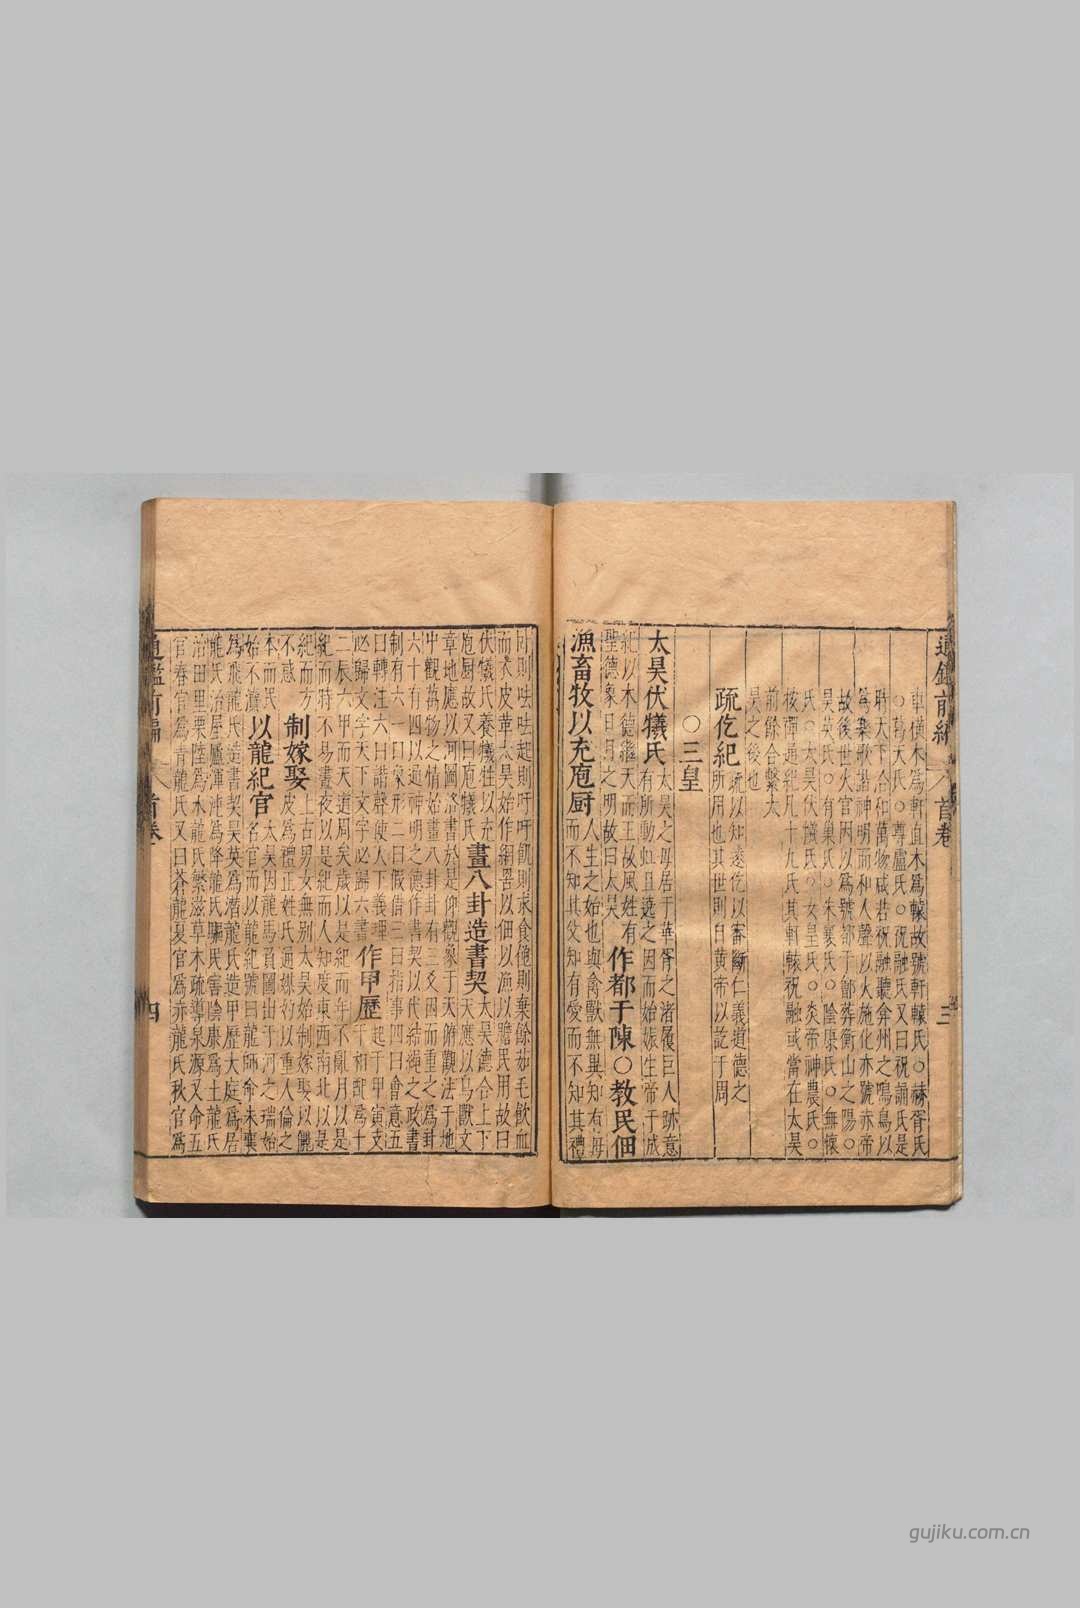 通鑑前編 首卷 三
車橫木爲軒直木爲轅故號軒轅氏○赫胥氏
○葛天氏○尊盧氏○祝融氏又曰祝誦氏是
時天下治和萬物咸若祝融聽弇州之鳴鳥以
爲樂歌諧神明而和人聲以火施化亦號赤帝
故後世火官因以爲號都于鄶葬衡山之陽○
昊英氏○有巢氏○朱襄氏○陰康氏○無懷
氏○太昊伏犧氏○女皇氏○炎帝神農氏○
按禪通紀凡十九氏其軒轅祝融或當在太昊
前餘合繫太
昊之後也
疏仡紀
疏以知遠仡以審斷仁義道德之
所用也其世則自黃帝以訖于周
○三皇
太昊伏犧氏
太昊之母居于華胥之渚履巨人跡意
有所動虹且遶之因而始娠生帝于成
紀以木德繼天而王故風姓有
聖德象日月之明故曰太昊
作都于陳○教民佃
漁畜牧以充庖厨
人生之始也與禽獸無異知有母
而不知其父知有愛而不知其禮
臥則呿呿起則吁吁飢則求食飽則棄餘茹毛飲血
而衣皮革太昊始作網罟以佃以漁以贍民用故曰
伏犧氏養犧牲以充
庖厨故又曰庖犧氏
畫八卦造書契
太昊德合上下
天應以鳥獸文
章地應以河圖洛書於是仰觀象于天俯觀法于地
中觀萬物之情始畫八卦卦有三爻因而重之爲卦
六十有四以通神明之德作書契以代結繩之政書
制有六一曰象形二曰假借三曰指事四曰會意五
曰轉注六曰諧聲使天下義理
必歸文字天下文字必歸六書
作甲歷
起于甲寅支
干相配爲十
二辰六甲而天道周矣歲以是紀而年不亂月以是
紀而時不易晝夜以是紀而人知度東西南北以是
紀而方
不惑
制嫁娶
上古男女無别太昊始制嫁娶以儷
皮爲禮正姓氏通媒妁以重人倫之
本而民
始不瀆
以龍紀官
太昊因龍馬負圖出于河之瑞始
名官而以龍紀號曰龍師命朱襄
爲飛龍氏造書契昊英爲潛龍氏造甲歷大庭爲居
龍氏治屋廬渾沌爲降龍氏驅民害陰康爲土龍氏
治田里栗陸爲水龍氏繁滋草木疏導泉源又命五
官春官爲青龍氏又曰蒼龍夏官爲赤龍氏秋官爲
通鑑前編 首卷 四
gujiku.com.cn